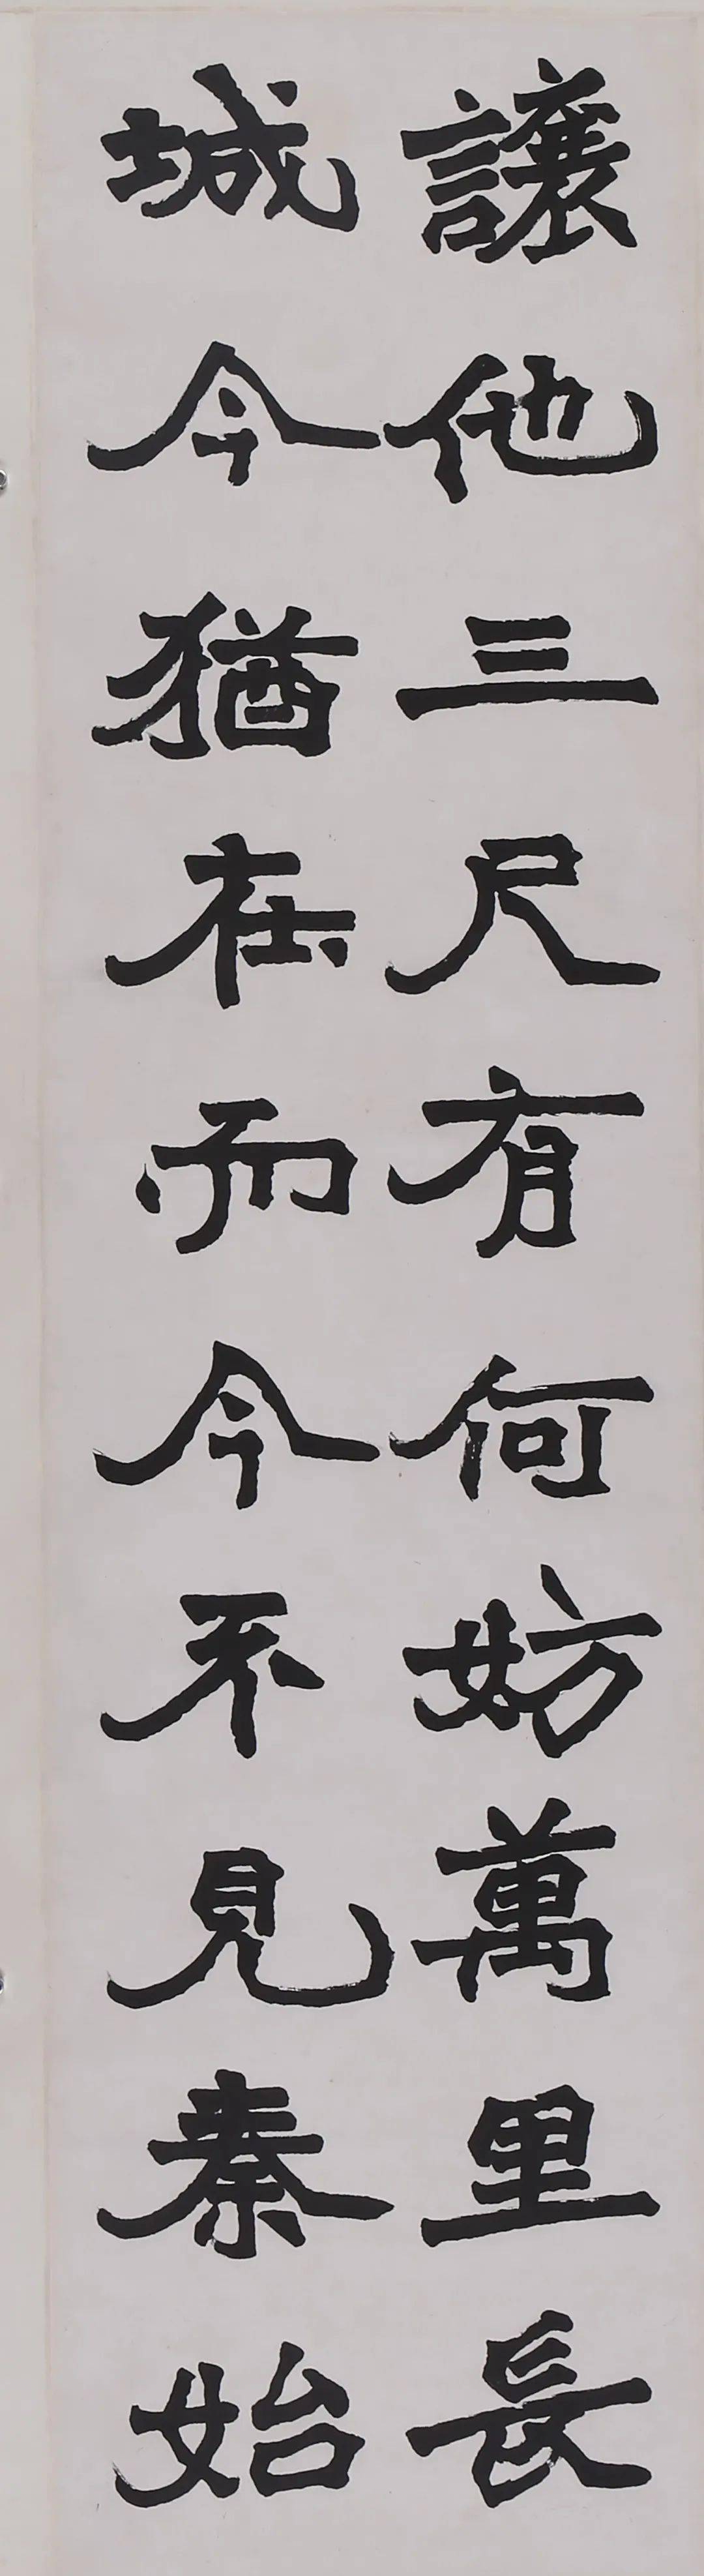 讓他三尺有何妨萬里長
城今猶在而今不見秦始